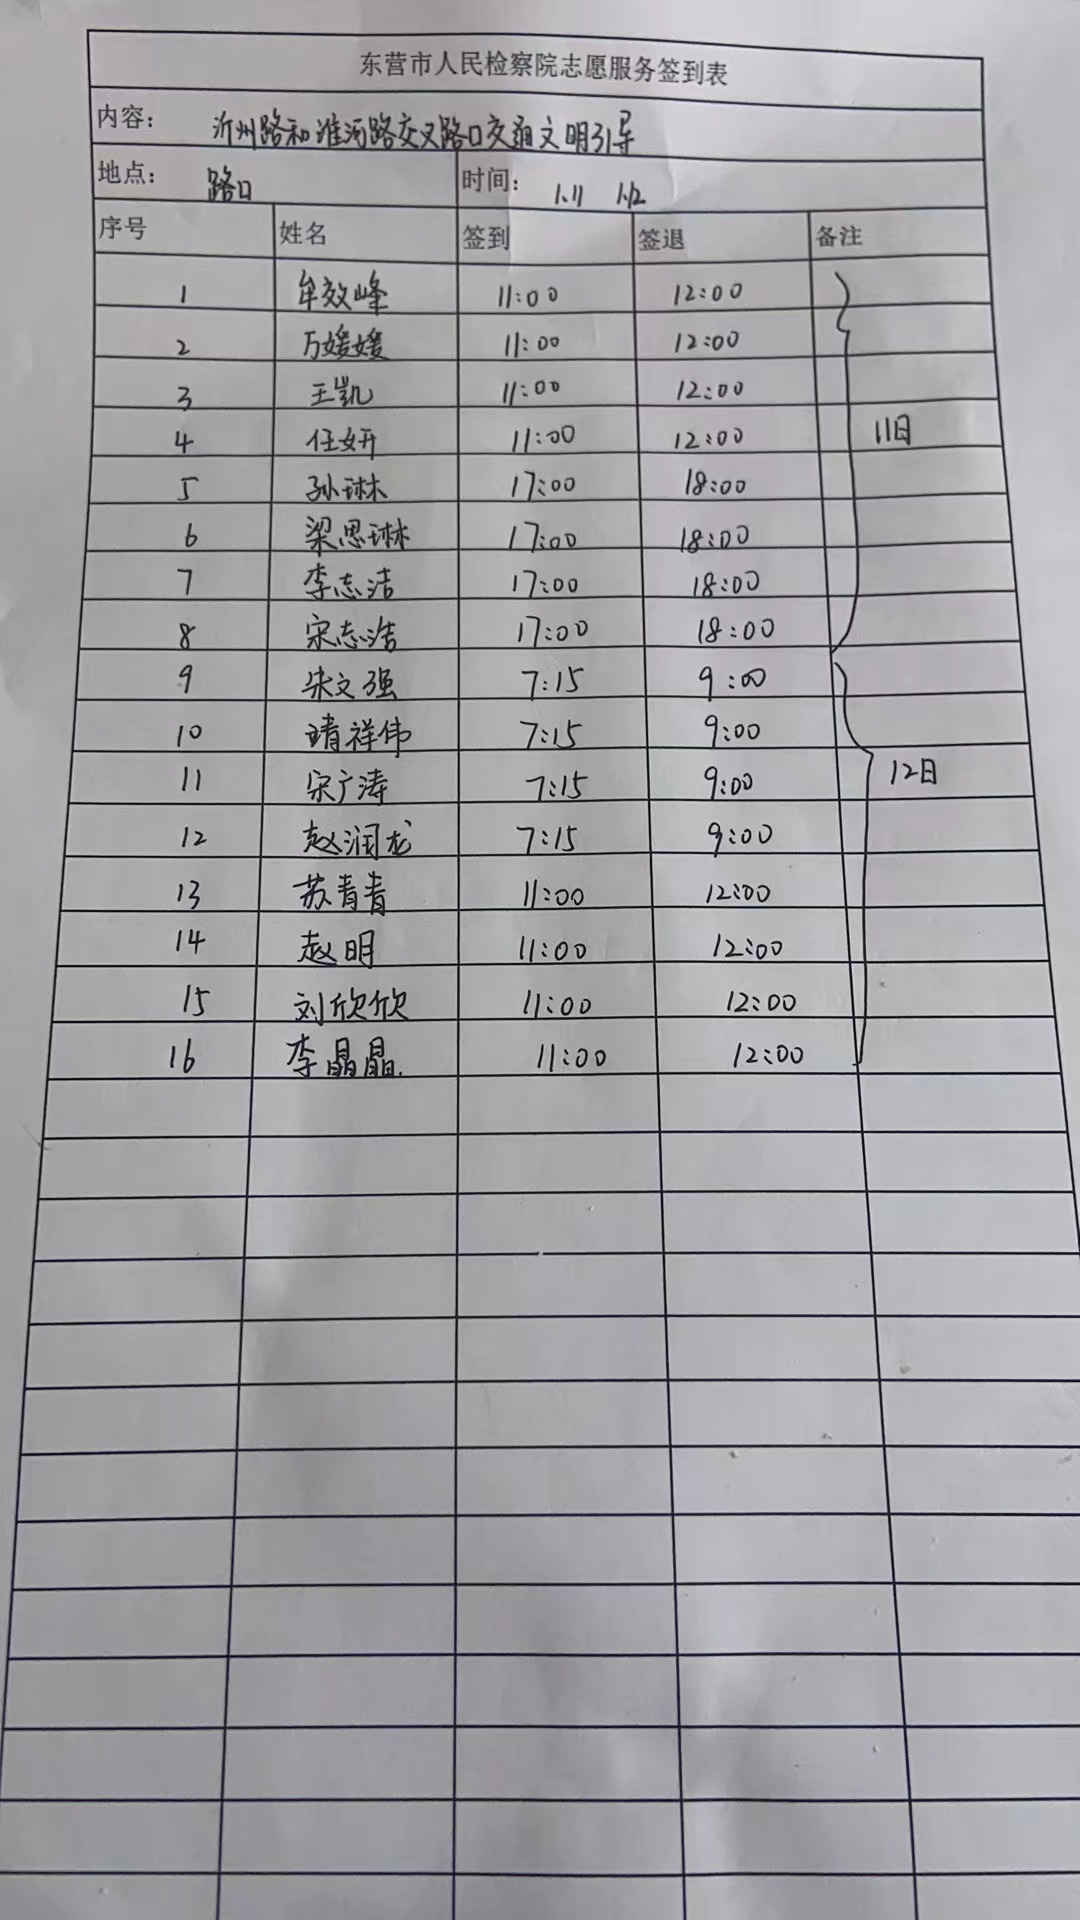 东营市人民检察院志愿服务签到表
内容： 沂州路和淮河路交叉路口交通文明引导
地点： 路口 时间： 1.11 1.12
序号 姓名 签到 签退 备注
1 牟效峰 11:00 12:00
2 万媛媛 11:00 12:00
3 王凯 11:00 12:00
4 任妍 11:00 12:00 11日
5 孙琳 17:00 18:00
6 梁思琳 17:00 18:00
7 李志洁 17:00 18:00
8 宋志浩 17:00 18:00
9 朱文强 7:15 9:00
10 靖祥伟 7:15 9:00
11 宋广涛 7:15 9:00 12日
12 赵润龙 7:15 9:00
13 苏青青 11:00 12:00
14 赵明 11:00 12:00
15 刘欣欣 11:00 12:00
16 李晶晶 11:00 12:00